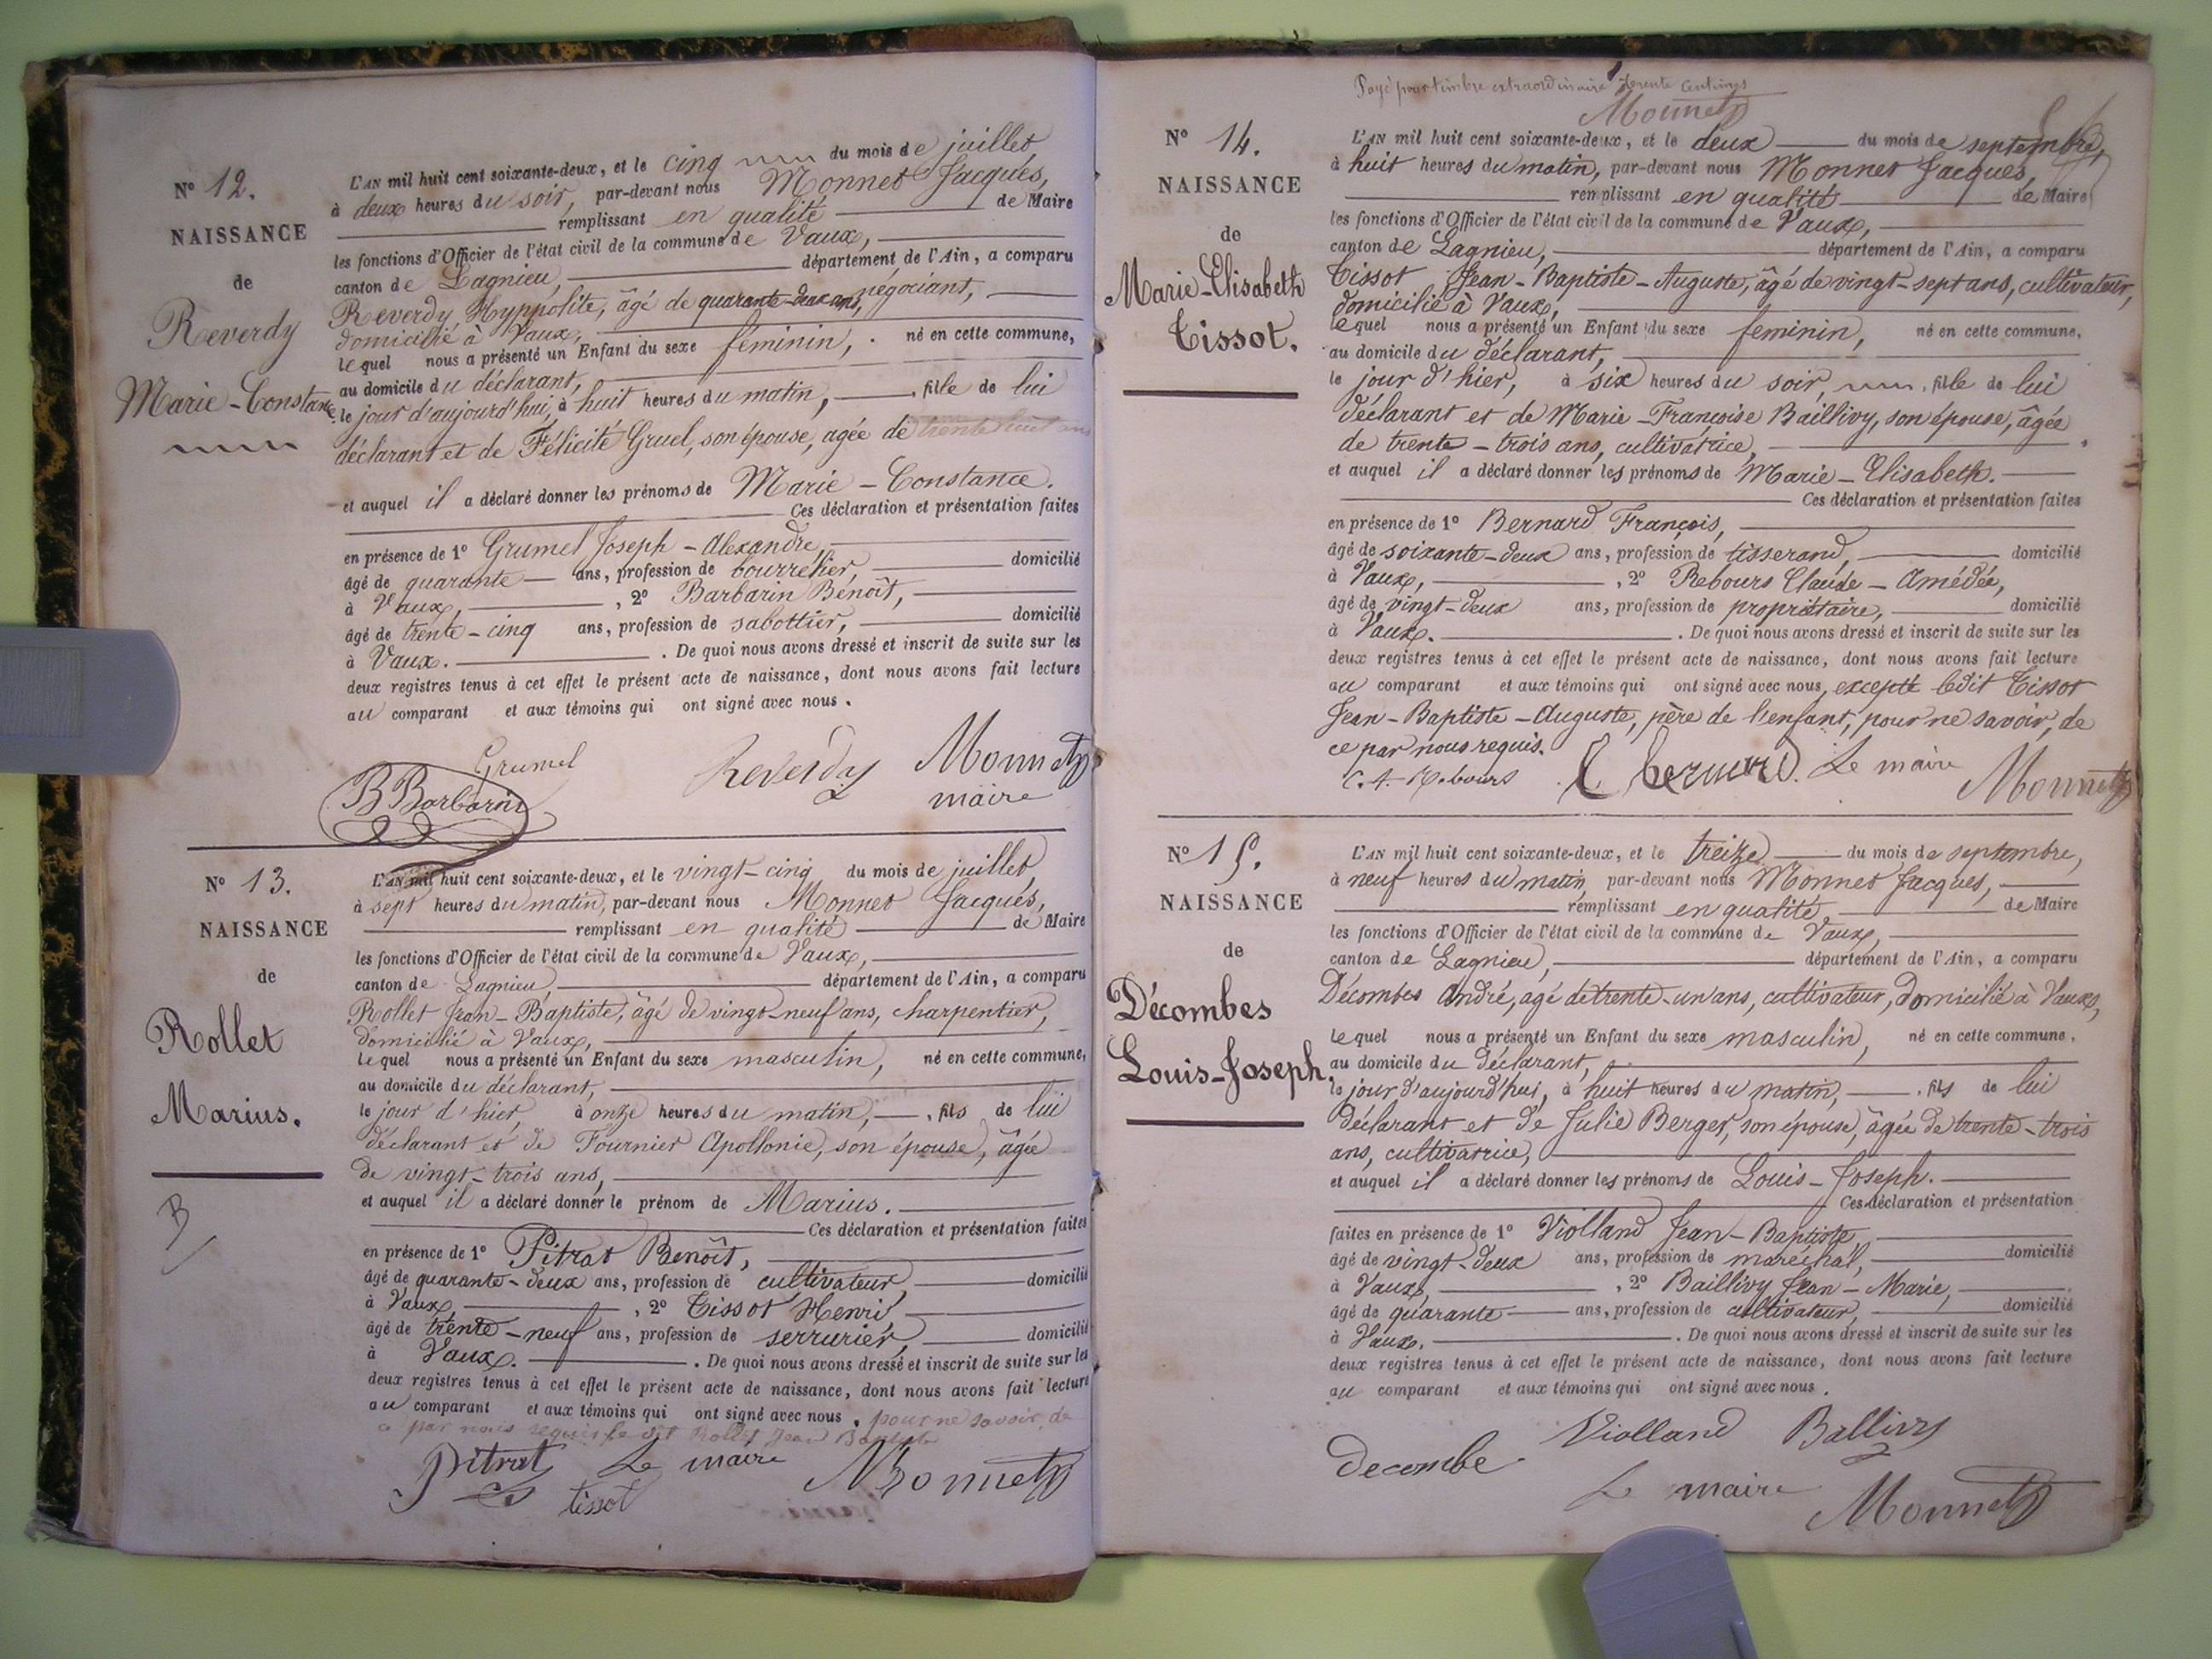 N° 12.
NAISSANCE
de
Reverdy
Marie-Constance
L'AN mil huit cent soixante-deux, et le cinq du mois de juillet
à deux heures du soir, par-devant nous Monnet Jacques,
remplissant en qualité de Maire
les fonctions d'Officier de l'état civil de la commune de Vaux,
canton de Lagnieu, département de l'Ain, a comparu
Reverdy Hyppolite, âgé de quarante-deux ans, négociant,
domicilié à Vaux,
lequel nous a présenté un Enfant du sexe féminin, né en cette commune,
au domicile du déclarant,
le jour d'aujourd'hui, à huit heures du matin, fille de lui
déclarant et de Félicité Gruel, son épouse, agée de trente huit ans
et auquel il a déclaré donner les prénoms de Marie-Constance.
Ces déclaration et présentation faites
en présence de 1° Grumel Joseph-Alexandre,
âgé de quarante ans, profession de bourrelier, domicilié
à Vaux, , 2° Barbarin Benoît,
âgé de trente-cinq ans, profession de sabottier, domicilié
à Vaux. . De quoi nous avons dressé et inscrit de suite sur les
deux registres tenus à cet effet le présent acte de naissance, dont nous avons fait lecture
au comparant et aux témoins qui ont signé avec nous.
Grumel
B Barbarin Reverdy Monnet
maire
N° 13.
NAISSANCE
de
Rollet
Marius.
B
L'AN mil huit cent soixante-deux, et le vingt-cinq du mois de juillet
à sept heures du matin, par-devant nous Monnet Jacques,
remplissant en qualité de Maire
les fonctions d'Officier de l'état civil de la commune de Vaux,
canton de Lagnieu, département de l'Ain, a comparu
Rollet Jean-Baptiste, âgé de vingt-neuf ans, charpentier,
domicilié à Vaux,
lequel nous a présenté un Enfant du sexe masculin, né en cette commune,
au domicile du déclarant,
le jour d'hier, à onze heures du matin, , fils de lui
déclarant et de Fournier Apollonie, son épouse, âgée
de vingt-trois ans,
et auquel il a déclaré donner le prénom de Marius.
Ces déclaration et présentation faites
en présence de 1° Pitrat Benoît,
âgé de quarante-deux ans, profession de cultivateur, domicilié
à Vaux, , 2° Tissot Henri,
âgé de trente-neuf ans, profession de serrurier, domicilié
à Vaux. . De quoi nous avons dressé et inscrit de suite sur les
deux registres tenus à cet effet le présent acte de naissance, dont nous avons fait lecture
au comparant et aux témoins qui ont signé avec nous, pour ne savoir, de
ce par nous requis le dit Rollet Jean Baptiste
Pitrat Le maire Monnet
tissot
Payé pour timbre extraordinaire trente centimes
Monnet
N° 14.
NAISSANCE
de
Marie-Elisabeth
Tissot.
L'AN mil huit cent soixante-deux, et le deux du mois de septembre,
à huit heures du matin, par-devant nous Monnet Jacques,
remplissant en qualité de Maire
les fonctions d'Officier de l'état civil de la commune de Vaux,
canton de Lagnieu, département de l'Ain, a comparu
Tissot Jean-Baptiste-Auguste, âgé de vingt-sept ans, cultivateur,
domicilié à Vaux,
lequel nous a présenté un Enfant du sexe feminin, né en cette commune,
au domicile du déclarant,
le jour d'hier, à six heures du soir, , fille de lui
déclarant et de Marie-Françoise Baillivy, son épouse, âgée
de trente-trois ans, cultivatrice,
et auquel il a déclaré donner les prénoms de Marie-Elisabeth.
Ces déclaration et présentation faites
en présence de 1° Bernard François,
âgé de soixante-deux ans, profession de tisserand, domicilié
à Vaux, , 2° Rebours Claude-Amédée,
âgé de vingt-deux ans, profession de propriétaire, domicilié
à Vaux. . De quoi nous avons dressé et inscrit de suite sur les
deux registres tenus à cet effet le présent acte de naissance, dont nous avons fait lecture
au comparant et aux témoins qui ont signé avec nous, excepté ledit Tissot
Jean-Baptiste-Auguste, père de l'enfant, pour ne savoir, de
ce par nous requis.
C. A. Rebours bernard. Le maire
Monnet
N° 15.
NAISSANCE
de
Décombes
Louis-Joseph.
L'AN mil huit cent soixante-deux, et le treize du mois de septembre,
à neuf heures du matin par-devant nous Monnet Jacques,
remplissant en qualité, de Maire
les fonctions d'Officier de l'état civil de la commune de Vaux,
canton de Lagnieu, département de l'Ain, a comparu
Décombes André, agé de trente-un ans, cultivateur, domicilié à Vaux,
lequel nous a présenté un Enfant du sexe masculin, né en cette commune,
au domicile du déclarant,
le jour d'aujourd'hui, à huit heures du matin, , fils de lui
déclarant et de Julie Berger, son épouse, âgée de trente-trois
ans, cultivatrice,
et auquel il a déclaré donner les prénoms de Louis-Joseph.
Ces déclaration et présentation
faites en présence de 1° Violland Jean-Baptiste,
âgé de vingt-deux ans, profession de maréchal, domicilié
à Vaux, , 2° Baillivy Jean-Marie,
âgé de quarante ans, profession de cultivateur, domicilié
à Vaux. . De quoi nous avons dressé et inscrit de suite sur les
deux registres tenus à cet effet le présent acte de naissance, dont nous avons fait lecture
au comparant et aux témoins qui ont signé avec nous.
Violland Ballivy
Decombe
Le maire Monnet